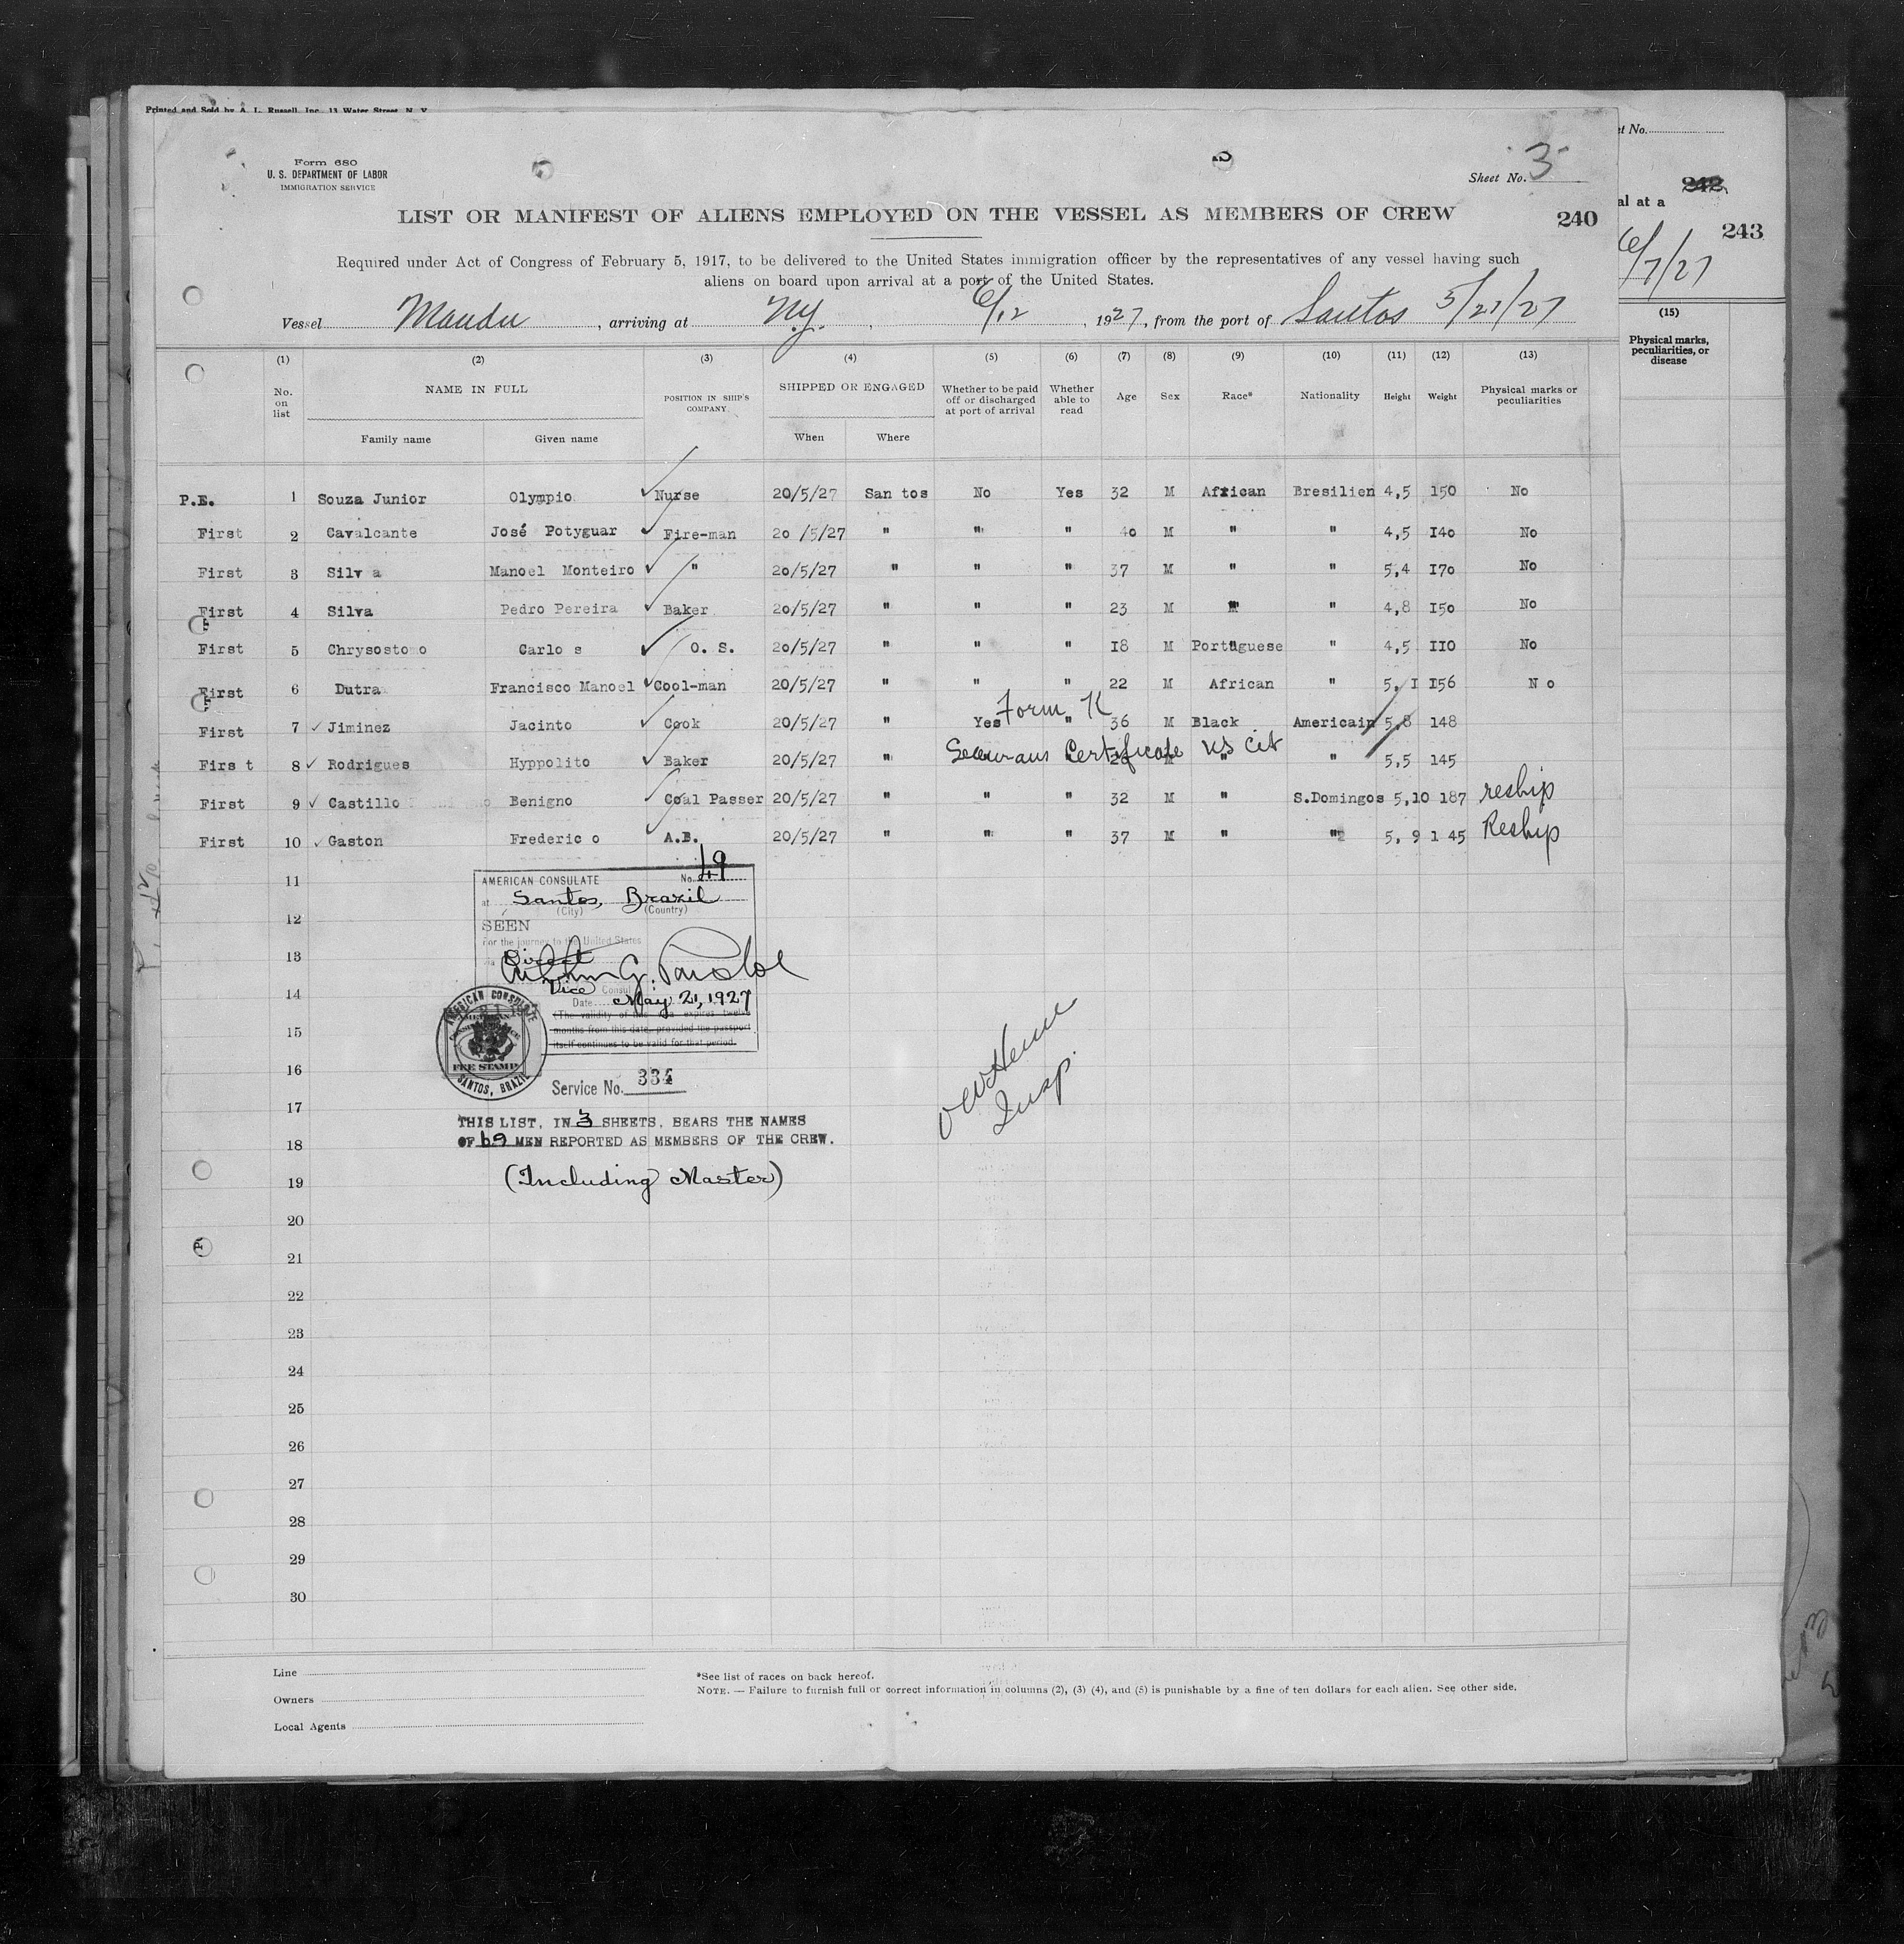 Printed and Sold by A. L. Russell, Inc. 13 Water Street, N. Y.
Form 680
U. S. DEPARTMENT OF LABOR
IMMIGRATION SERVICE
Sheet No. 3
LIST OR MANIFEST OF ALIENS EMPLOYED ON THE VESSEL AS MEMBERS OF CREW
240
Required under Act of Congress of February 5, 1917, to be delivered to the United States immigration officer by the representatives of any vessel having such
aliens on board upon arrival at a port of the United States.
Vessel Mandu, arriving at N.Y., 6/12, 1927, from the port of Santos 5/21/27
(1) (2) (3) (4) (5) (6) (7) (8) (9) (10) (11) (12) (13)
No. on list NAME IN FULL Family name Given name POSITION IN SHIP'S COMPANY SHIPPED OR ENGAGED When Where Whether to be paid off or discharged at port of arrival Whether able to read Age Sex Race* Nationality Height Weight Physical marks or peculiarities
P.E. 1 Souza Junior Olympio Nurse 20/5/27 San tos No Yes 32 M African Bresilien 4,5 150 No
First 2 Cavalcante José Potyguar Fire-man 20 /5/27 " " " 40 M " " 4,5 140 No
First 3 Silv a Manoel Monteiro " 20/5/27 " " " 37 M " " 5,4 170 No
First 4 Silva Pedro Pereira Baker 20/5/27 " " " 23 M " " 4,8 150 No
First 5 Chrysostomo Carlo s O. S. 20/5/27 " " " 18 M Portuguese " 4,5 110 No
First 6 Dutra Francisco Manoel Cool-man 20/5/27 " " " 22 M African " 5, 1 156 N o
Form K
First 7 Jiminez Jacinto Cook 20/5/27 " Yes " 36 M Black Americain 5,8 148
Firs t 8 Rodrigues Hyppolito Baker 20/5/27 " Certificate US Cit M " " 5,5 145
First 9 Castillo Benigno Coal Passer 20/5/27 " " " 32 M " S.Domingos 5,10 187 reship
First 10 Gaston Frederic o A.B. 20/5/27 " " " 37 M " " 5, 9 1 45 Reship
11
12
13
14
15
16
17
18
19
20
21
22
23
24
25
26
27
28
29
30
AMERICAN CONSULATE No. 49
at Santos, Brazil
(City) (Country)
SEEN
For the journey to the United States
Direct
Vice Consul
Date May 21, 1927
(The validity of this visa expires twelve
months from this date, provided the passport
itself continues to be valid for that period.
AMERICAN CONSULATE
FEE STAMP
SANTOS, BRAZIL
Service No. 334
THIS LIST, IN 3 SHEETS, BEARS THE NAMES
OF 69 MEN REPORTED AS MEMBERS OF THE CREW.
(Including Master)
Insp.
Line
Owners
Local Agents
*See list of races on back hereof.
NOTE. — Failure to furnish full or correct information in columns (2), (3) (4), and (5) is punishable by a fine of ten dollars for each alien. See other side.
t No.
al at a
242
243
6/7/27
(15)
Physical marks,
peculiarities, or
disease